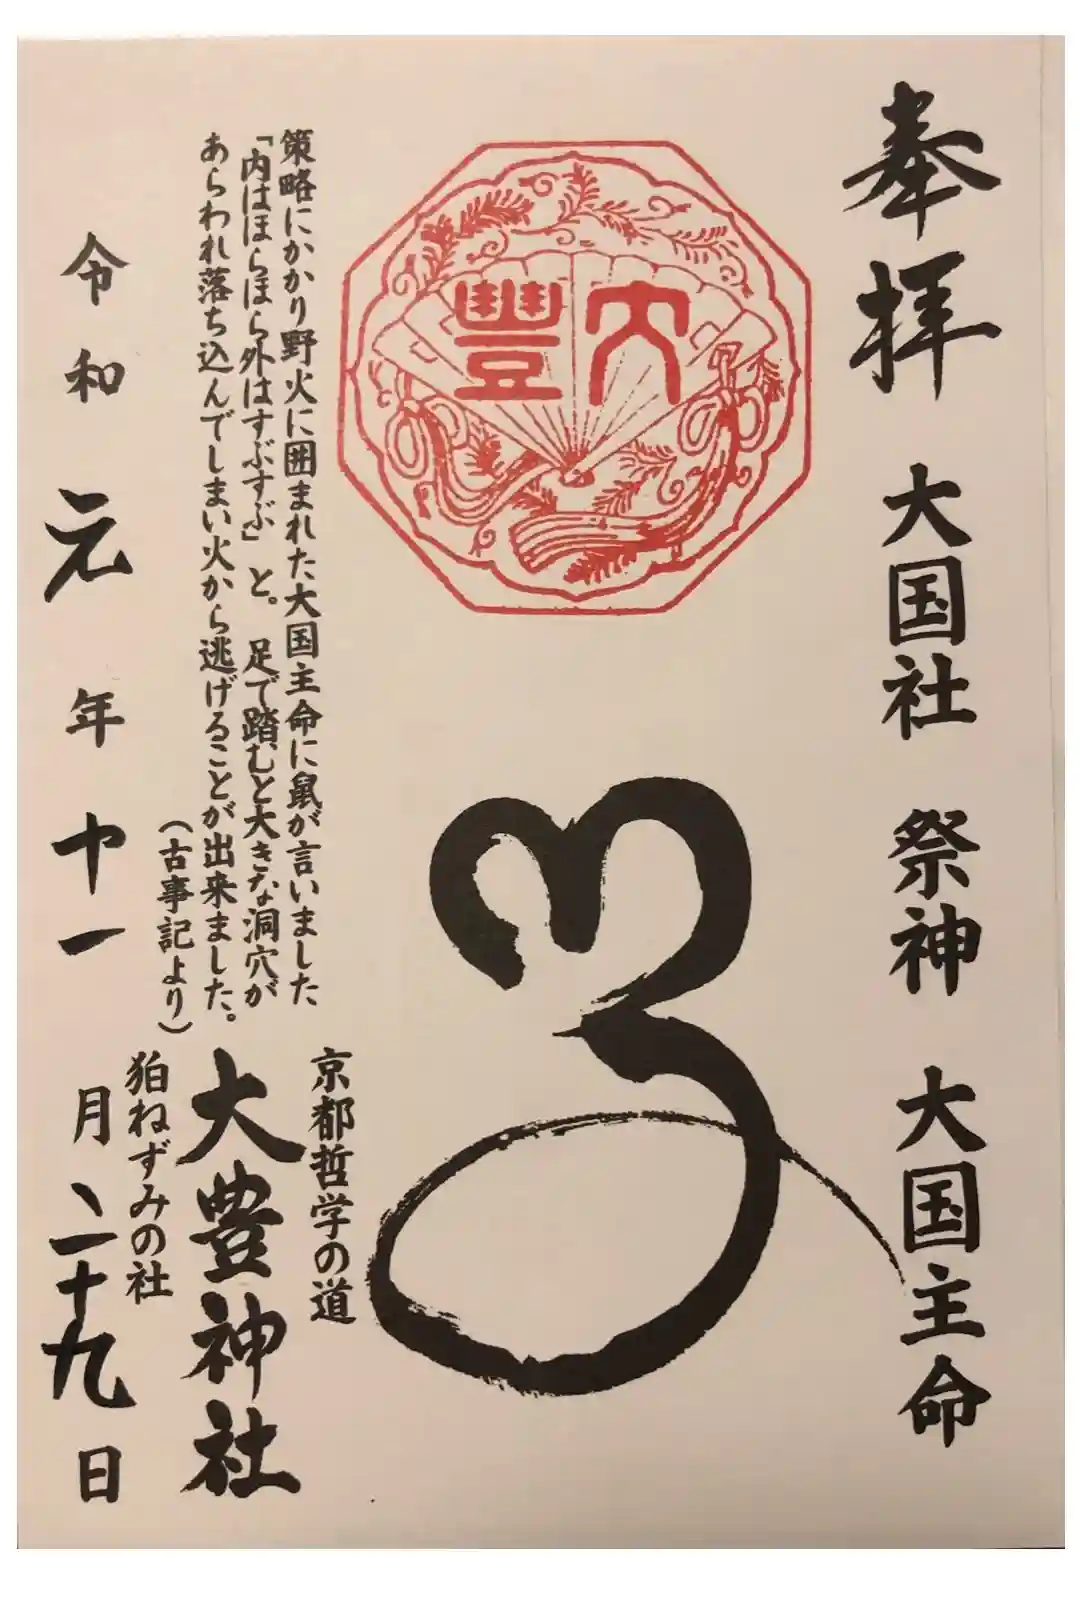 奉拝 大国社 祭神 大国主命
大豐
京都哲学の道
策略にかかり野火に囲まれた大国主命に鼠が言いました
「内はほらほら外はすぶすぶ」と。足で踏むと大きな洞穴が
あらわれ落ち込んでしまい火から逃げることが出来ました。
（古事記より）
大豊神社
狛ねずみの社
令和元年十一月二十九日